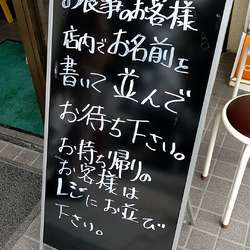 お食事のお客様
店内でお名前を
書いて並んで
お待ち下さい。
お持ち帰りの
お客様は
レジにお並び
下さい。